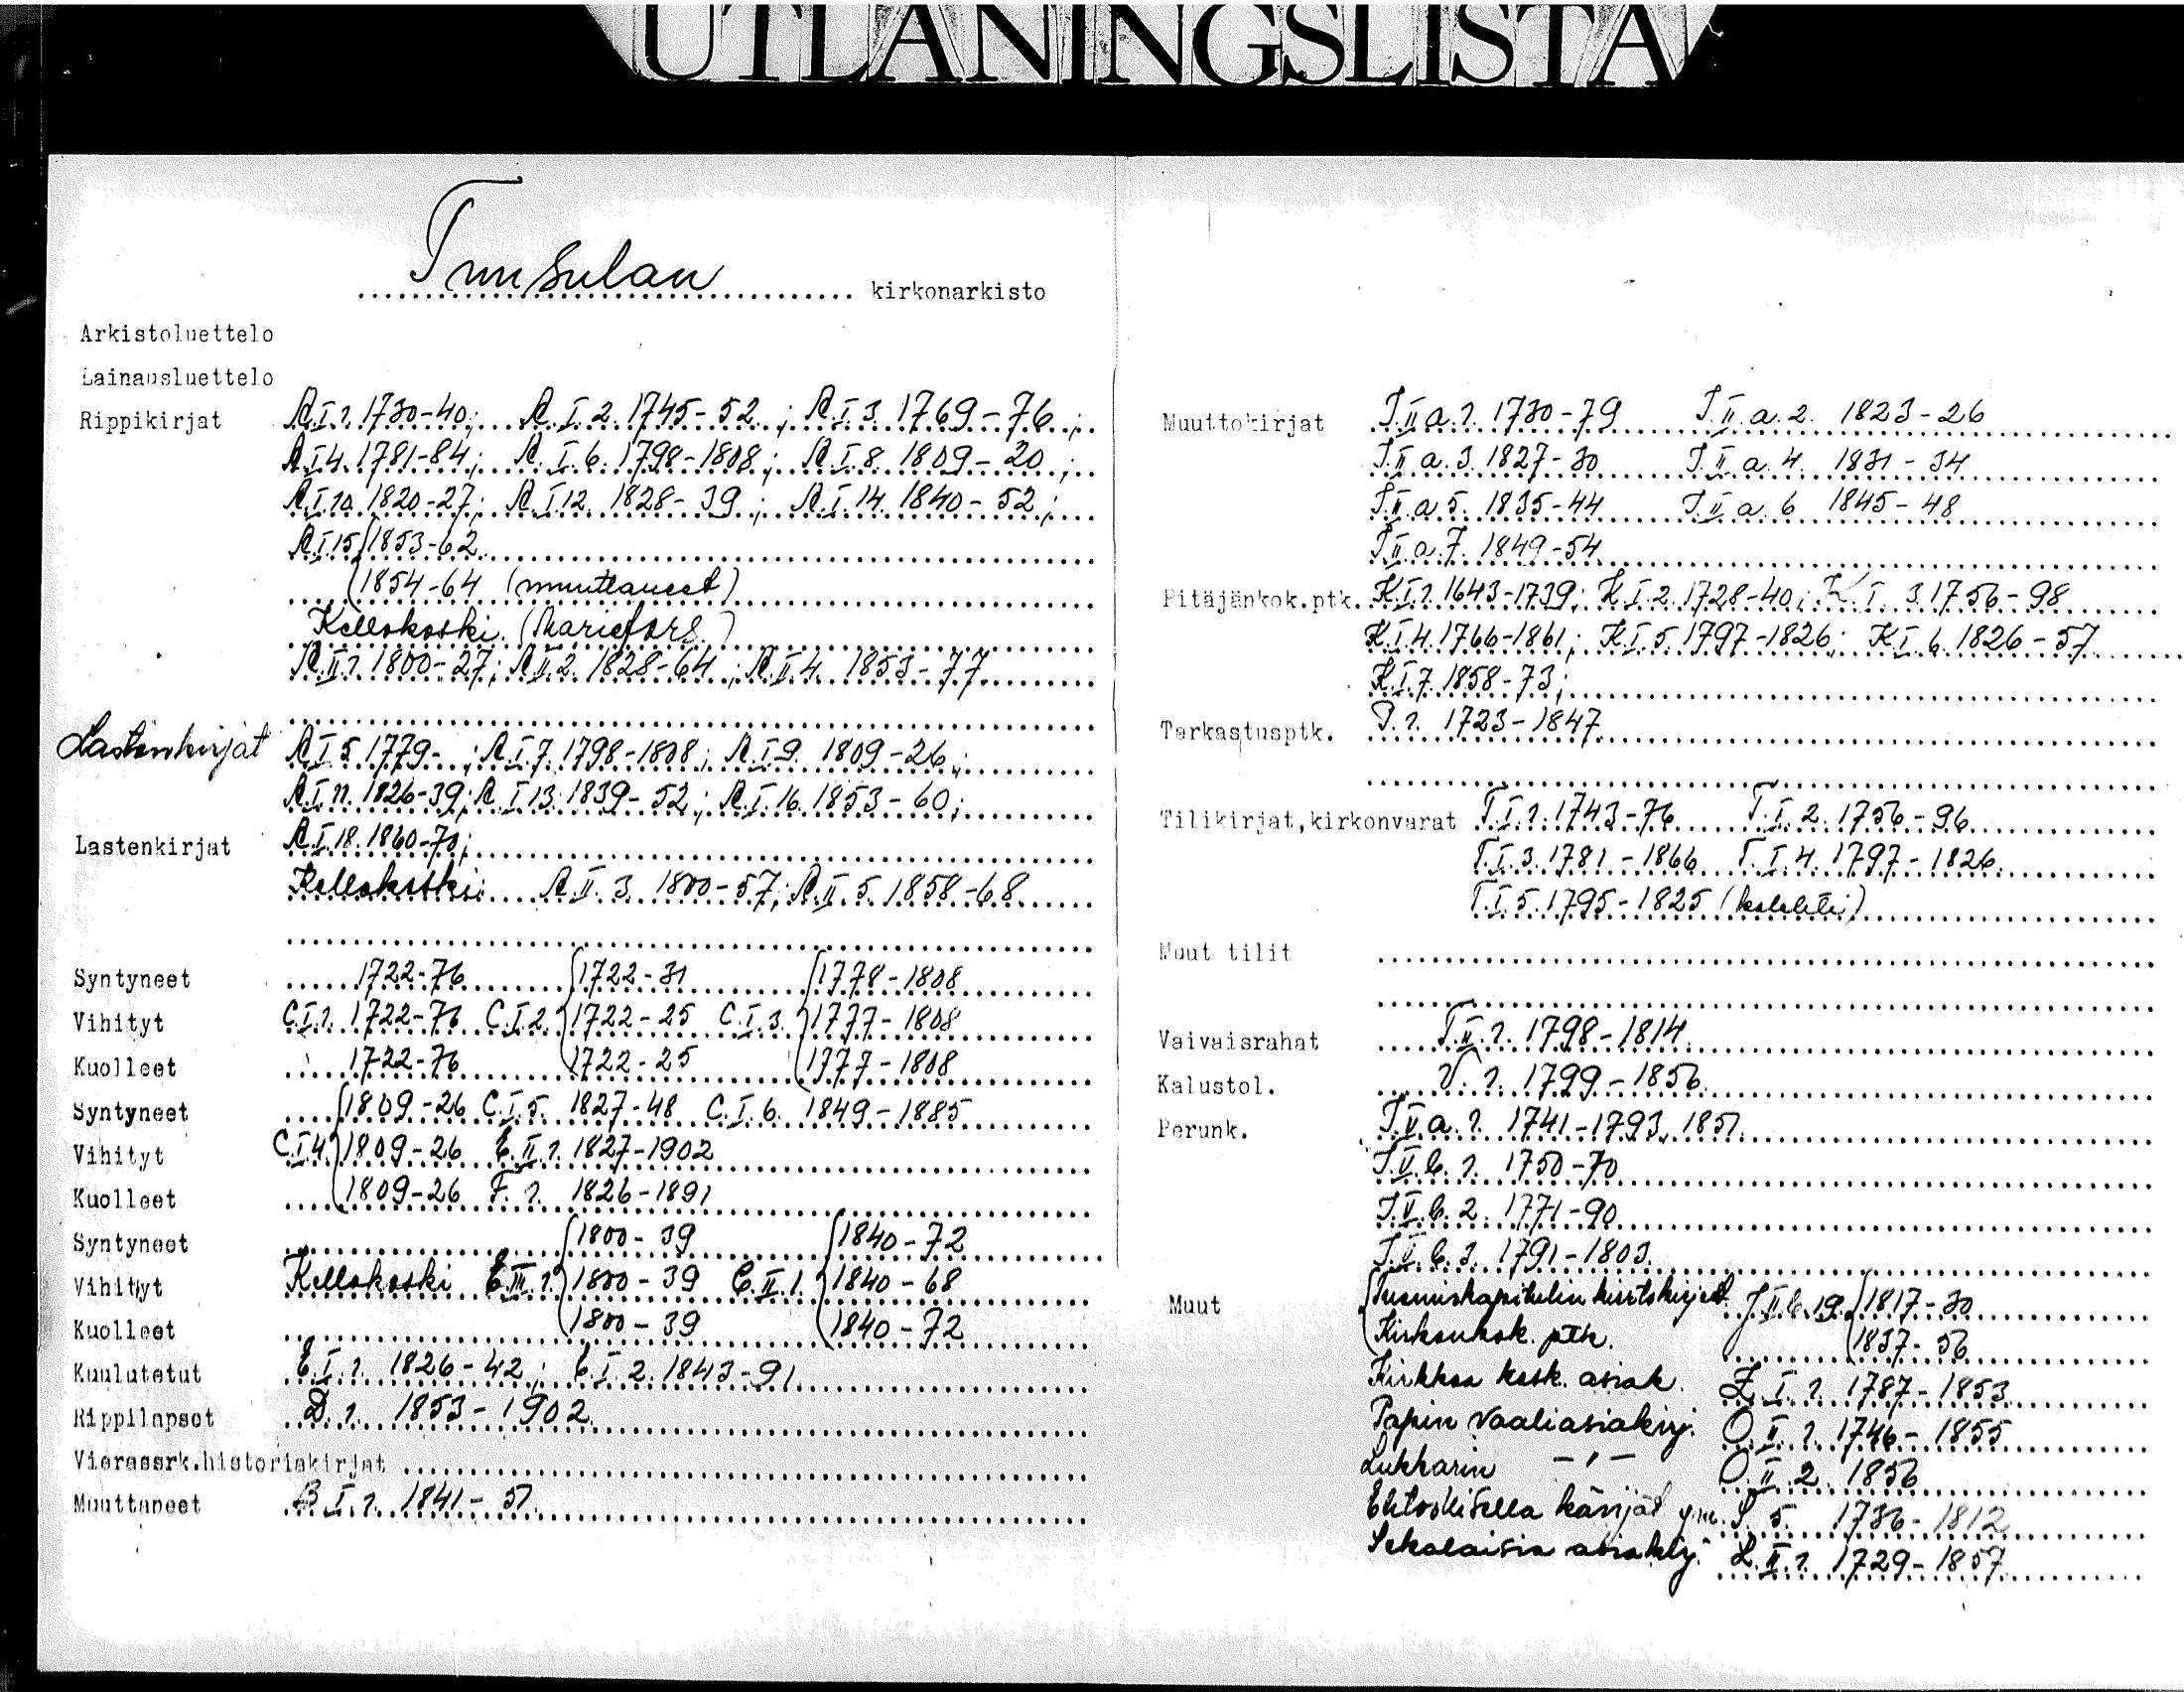 UTLÅNINGSLISTA
Tuusulan kirkonarkisto
Arkistoluettelo
Lainausluettelo
Rippikirjat A.I.1. 1730-40; A.I.2. 1745-52; A.I.3. 1769-76;
A.I.4. 1781-84; A.I.6. 1798-1808; A.I.8. 1809-20;
A.I.10. 1820-27; A.I.12. 1828-39; A.I.14. 1840-52;
A.I.15. 1853-62
1854-64 (muuttaneet)
Kellokoski (Mariefors)
A.II.1. 1800-27; A.II.2. 1828-64; A.II.4. 1853-77
Lastenkirjat A.I.5. 1779- ; A.I.7. 1798-1808; A.I.9. 1809-26;
A.I.11. 1826-39; A.I.13. 1839-52; A.I.16. 1853-60;
Lastenkirjat A.I.18. 1860-70;
Kellokoski A.II.3. 1800-57; A.II.5. 1858-68
Syntyneet 1722-76 1722-31 1778-1808
Vihityt C.I.1. 1722-76 C.I.2. 1722-25 C.I.3. 1777-1808
Kuolleet 1722-76 1722-25 1777-1808
Syntyneet 1809-26 C.I.5. 1827-48 C.I.6. 1849-1885
Vihityt C.I.4. 1809-26 E.II.1. 1827-1902
Kuolleet 1809-26 F.1. 1826-1891
Syntyneet 1800-39 1840-72
Vihityt Kellokoski 1800-39 C.II.1. 1840-68
Kuolleet 1800-39 1840-72
Kuulutetut E.I.1. 1826-42; E.I.2. 1843-91
Rippilapset D.1. 1853-1902
Vierassrk.historiakirjat
Muuttaneet B.I.1. 1841-51
Muuttokirjat J.II.a.1. 1730-79 J.II.a.2. 1823-26
J.II.a.3. 1827-30 J.II.a.4. 1831-34
J.II.a.5. 1835-44 J.II.a.6. 1845-48
J.II.a.7. 1849-54
Pitäjänkok.ptk. K.I.1. 1643-1739; K.I.2. 1728-40; K.I.3. 1756-98
K.I.4. 1766-1861; K.I.5. 1797-1826; K.I.6. 1826-57
K.I.7. 1858-73;
Tarkastusptk. P.1. 1723-1847
Tilikirjat,kirkonvarat T.I.1. 1743-76 T.I.2. 1756-96
T.I.3. 1781-1866 T.I.4. 1797-1826
T.I.5. 1795-1825 (kolehti)
Muut tilit
Vaivaisrahat T.II.1. 1798-1814
Kalustol. V.1. 1799-1856
Perunk. J.V.a.1. 1741-1793, 1851
J.V.b.1. 1750-70
J.V.b.2. 1771-90
J.V.b.3. 1791-1803
Muut Tuomiokapitulin kiertokirjeet J.II.b.19. 1817-30
Kirkonkok. ptk. 1837-56
Kirkkoa kosk. asiak. Z.I.1. 1787-1853
Papin vaaliasiakirj. O.II.1. 1746-1855
Lukkarin -"- O.II.2. 1856
Ehtoollisella kävijät ym. S.5. 1736-1812
Sekalaisia asiakirj. 1729-1857